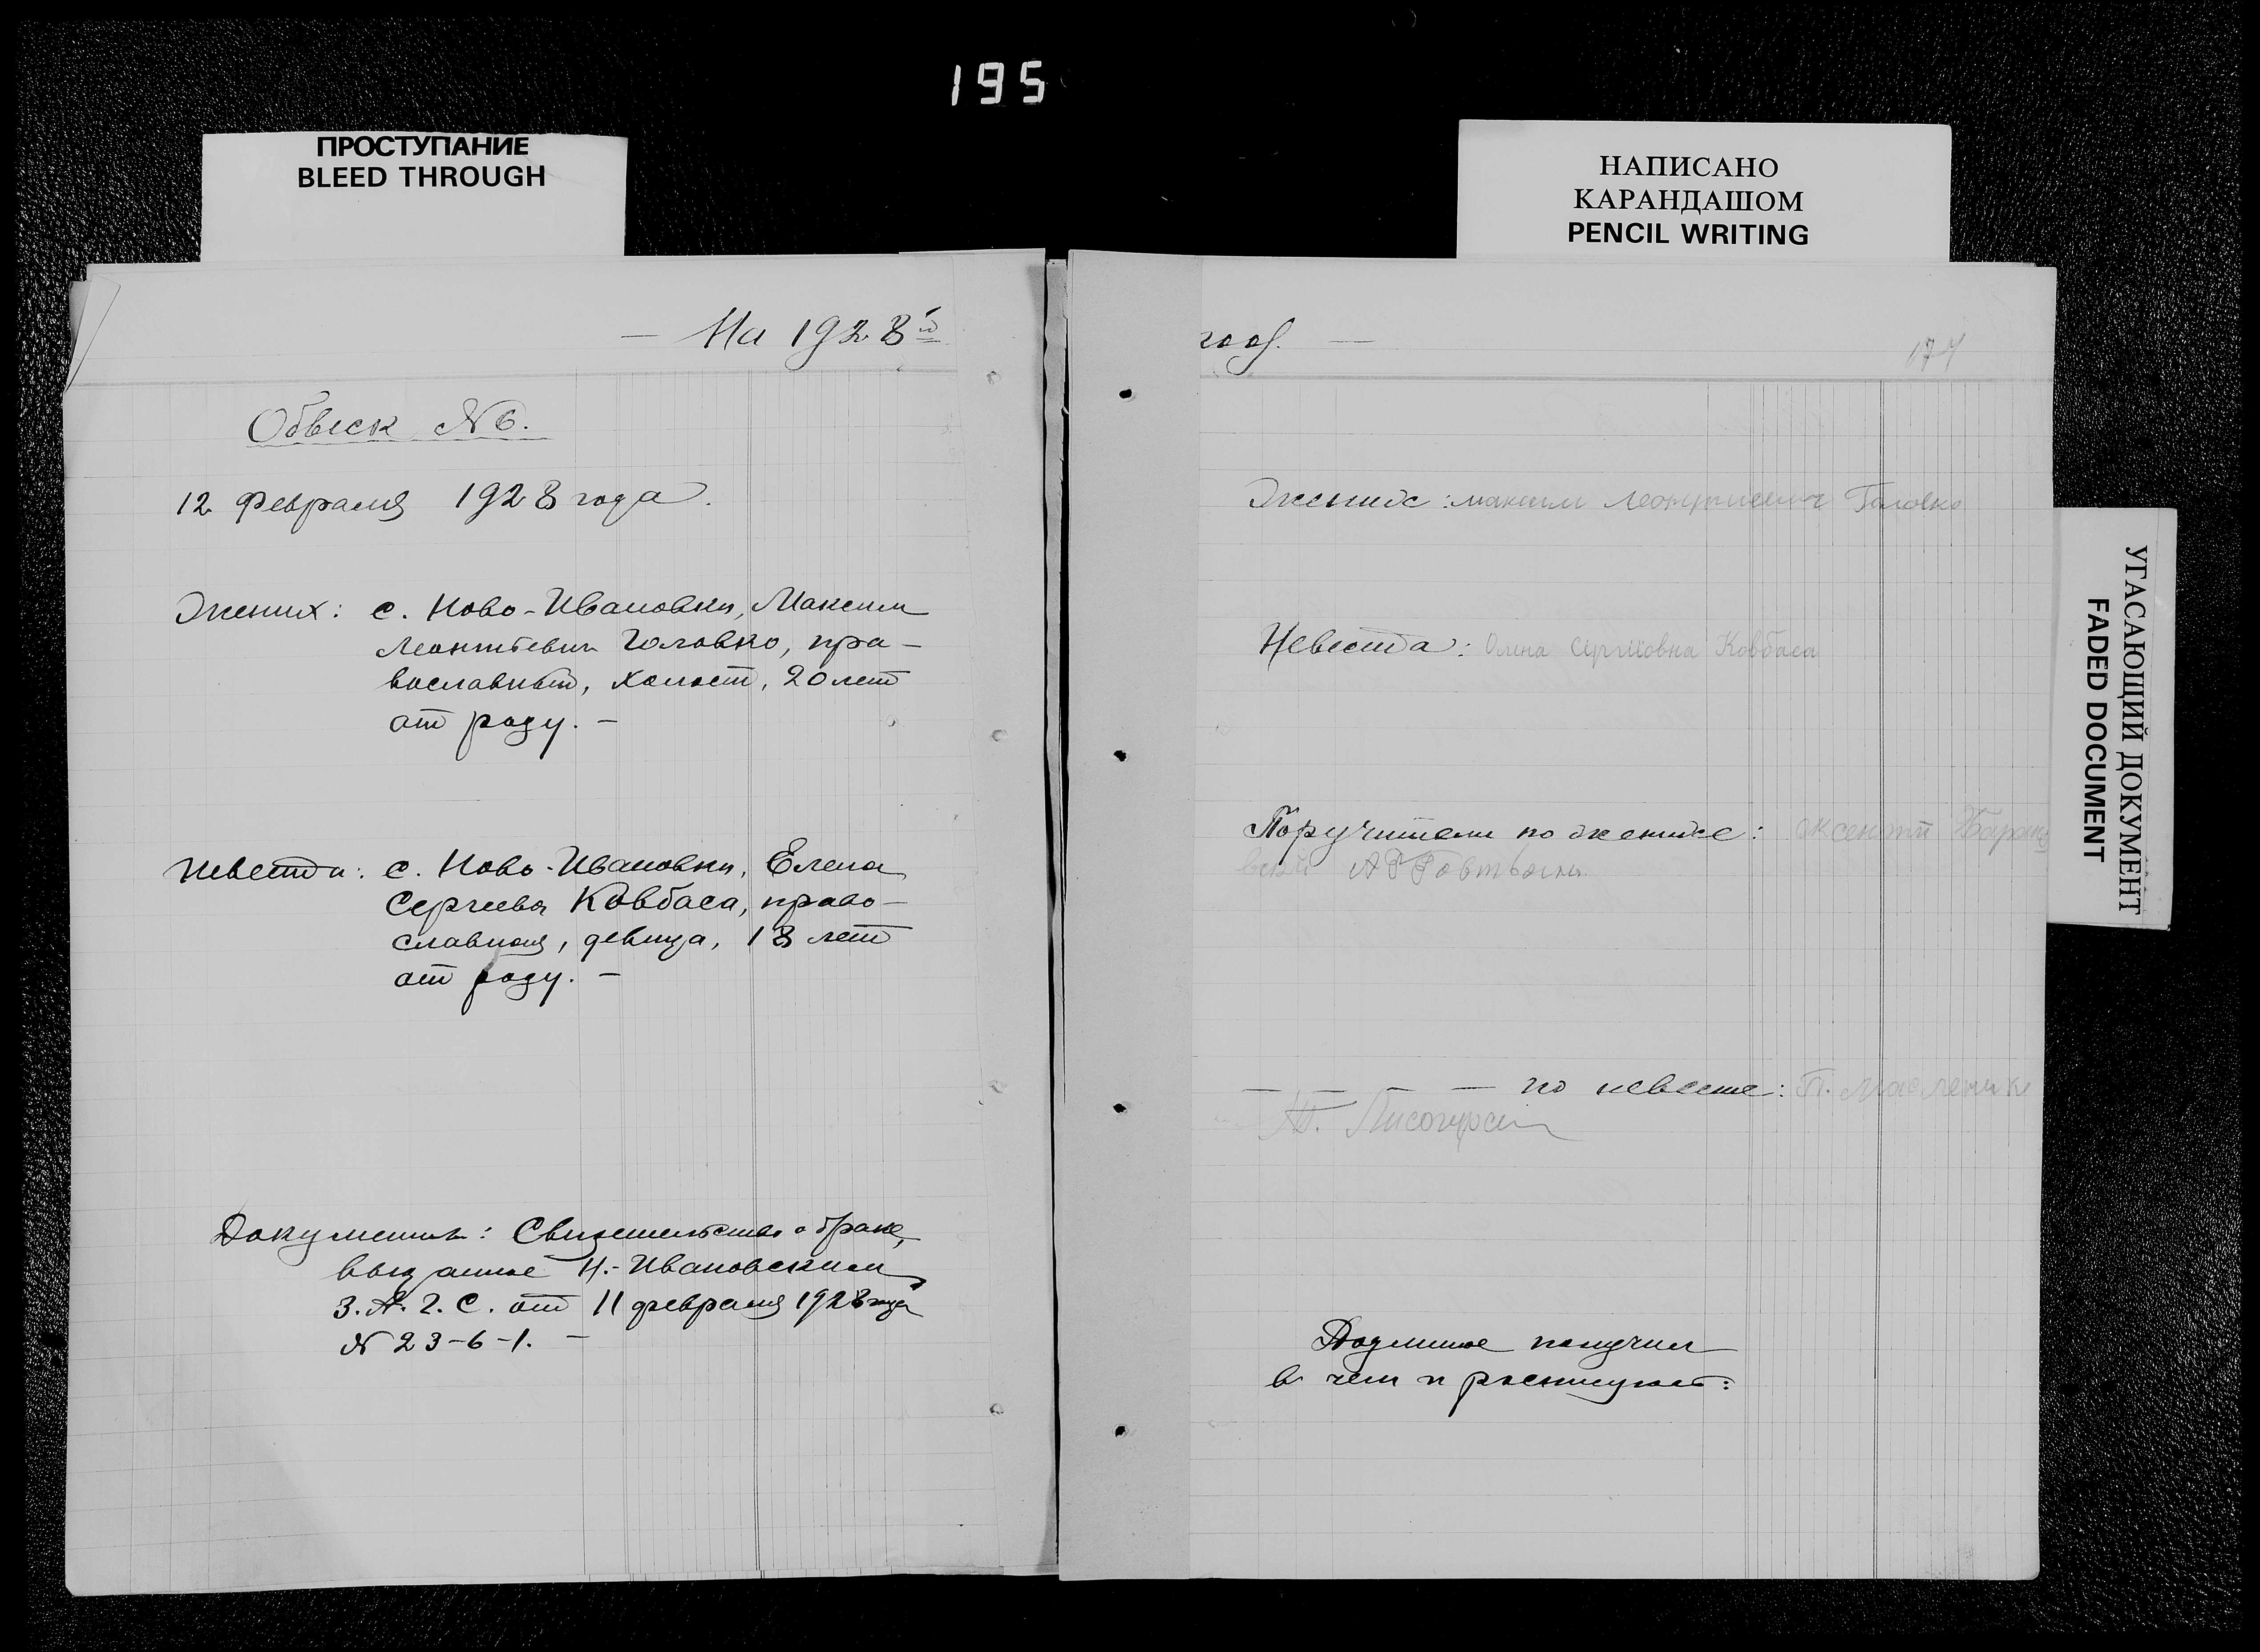 195
ПРОСТУПАНИЕ
BLEED THROUGH
НАПИСАНО
КАРАНДАШОМ
PENCIL WRITING
УГАСАЮЩИЙ ДОКУМЕНТ
FADED DOCUMENT
— На 1928й
Обыск № 6.
12 Февраля 1928 года.
Жених: с. Ново-Ивановки, Максим
Леонтьевич Головко, пра-
вославный, холост, 20 лет
от роду. —
Невеста: с. Ново-Ивановки, Елена
Сергеева Ковбаса, право-
славная, девица, 18 лет
от роду. —
Документы: Свидетельство о браке,
выданное Н.-Ивановским
З.А.Г.С. от 11 февраля 1928 года
№ 23-6-1. —
год. —
174
Жених: максим Леонтиевич Головко
Невеста: Олена Сергіювна Ковбаса
Поручители по женихе: оксентий
— — — — по невесте: П. Масленик
Подлинное получил
в чем и расписуюсь: